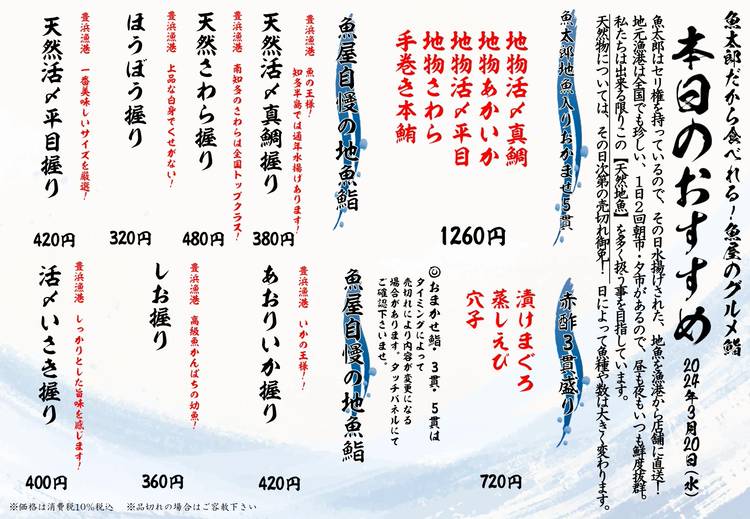 魚太郎だから食べれる！魚屋のグルメ鮨
本日のおすすめ
2024年3月20日（水）
魚太郎はセリ権を持っているので、その日水揚げされた、地魚を漁港から店舗に直送！
地元漁港は全国でも珍しい、1日2回朝市・夕市があるので、昼も夜もいつも鮮度抜群。
私たちは出来る限りこの【天然地魚】を多く扱う事を目指しています。
天然物については、その日次第の売切れ御免！ 日によって魚種や数は大きく変わります。
魚太郎地魚入りおかませ5貫
地物活〆真鯛
地物あかいか
地物活〆平目
地物さわら
手巻き本鮪
1260円
魚屋自慢の地魚鮨
豊浜漁港 魚の王様！
知多半島では通年水揚げあります！
天然活〆真鯛握り
380円
豊浜漁港 南知多のさわらは全国トップクラス！
天然さわら握り
480円
豊浜漁港 上品な白身でくせがない！
ほうぼう握り
320円
豊浜漁港 一番美味しいサイズを厳選！
天然活〆平目握り
420円
赤酢3貫盛り
漬けまぐろ
蒸しえび
穴子
720円
◎おまかせ鮨・3貫・5貫は
タイミングによって
売切れにより内容が変更になる
場合があります。タッチパネルにて
ご確認下さいませ。
魚屋自慢の地魚鮨
豊浜漁港 いかの王様！！
あおりいか握り
420円
豊浜漁港 高級魚かんぱちの幼魚！
しお握り
360円
豊浜漁港 しっかりとした旨味を感じます！
活〆いさき握り
400円
※価格は消費税10%税込 ※品切れの場合はご容赦下さい